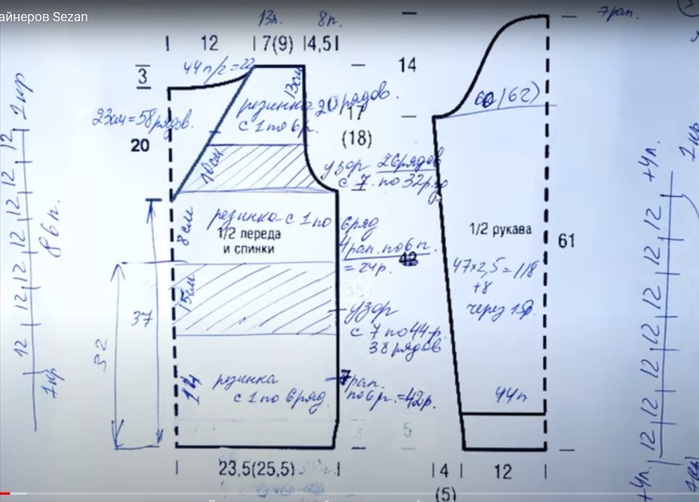 айнеров Sezan
13п. 8п.
12 7(9) 4,5
7рап.
3
44п/2=22
14
13см
резинка 20 рядов.
с 1 по 6р.
23см=58рядов.
20
17
(18)
60(62)
10см
узор 26рядов
с 7 по 32ряд
резинка с 1 по 6ряд
1/2 переда
и спинки
8см
4рап. по 6 п.
= 24р.
42
1/2 рукава
61
47×2,5=118
+8
через 1
15см
37
52
узор
с 7 по 44р.
38рядов
14
резинка
с 1 по 6ряд
7рап.
по 6р.=42р.
44п
5
23,5(25,5)
4
(5)
12
12 12 12 12 12 12 12 1кр
1кр
86п.
+4п. 12 12 12 12 12 12 12 +4п.
1кр